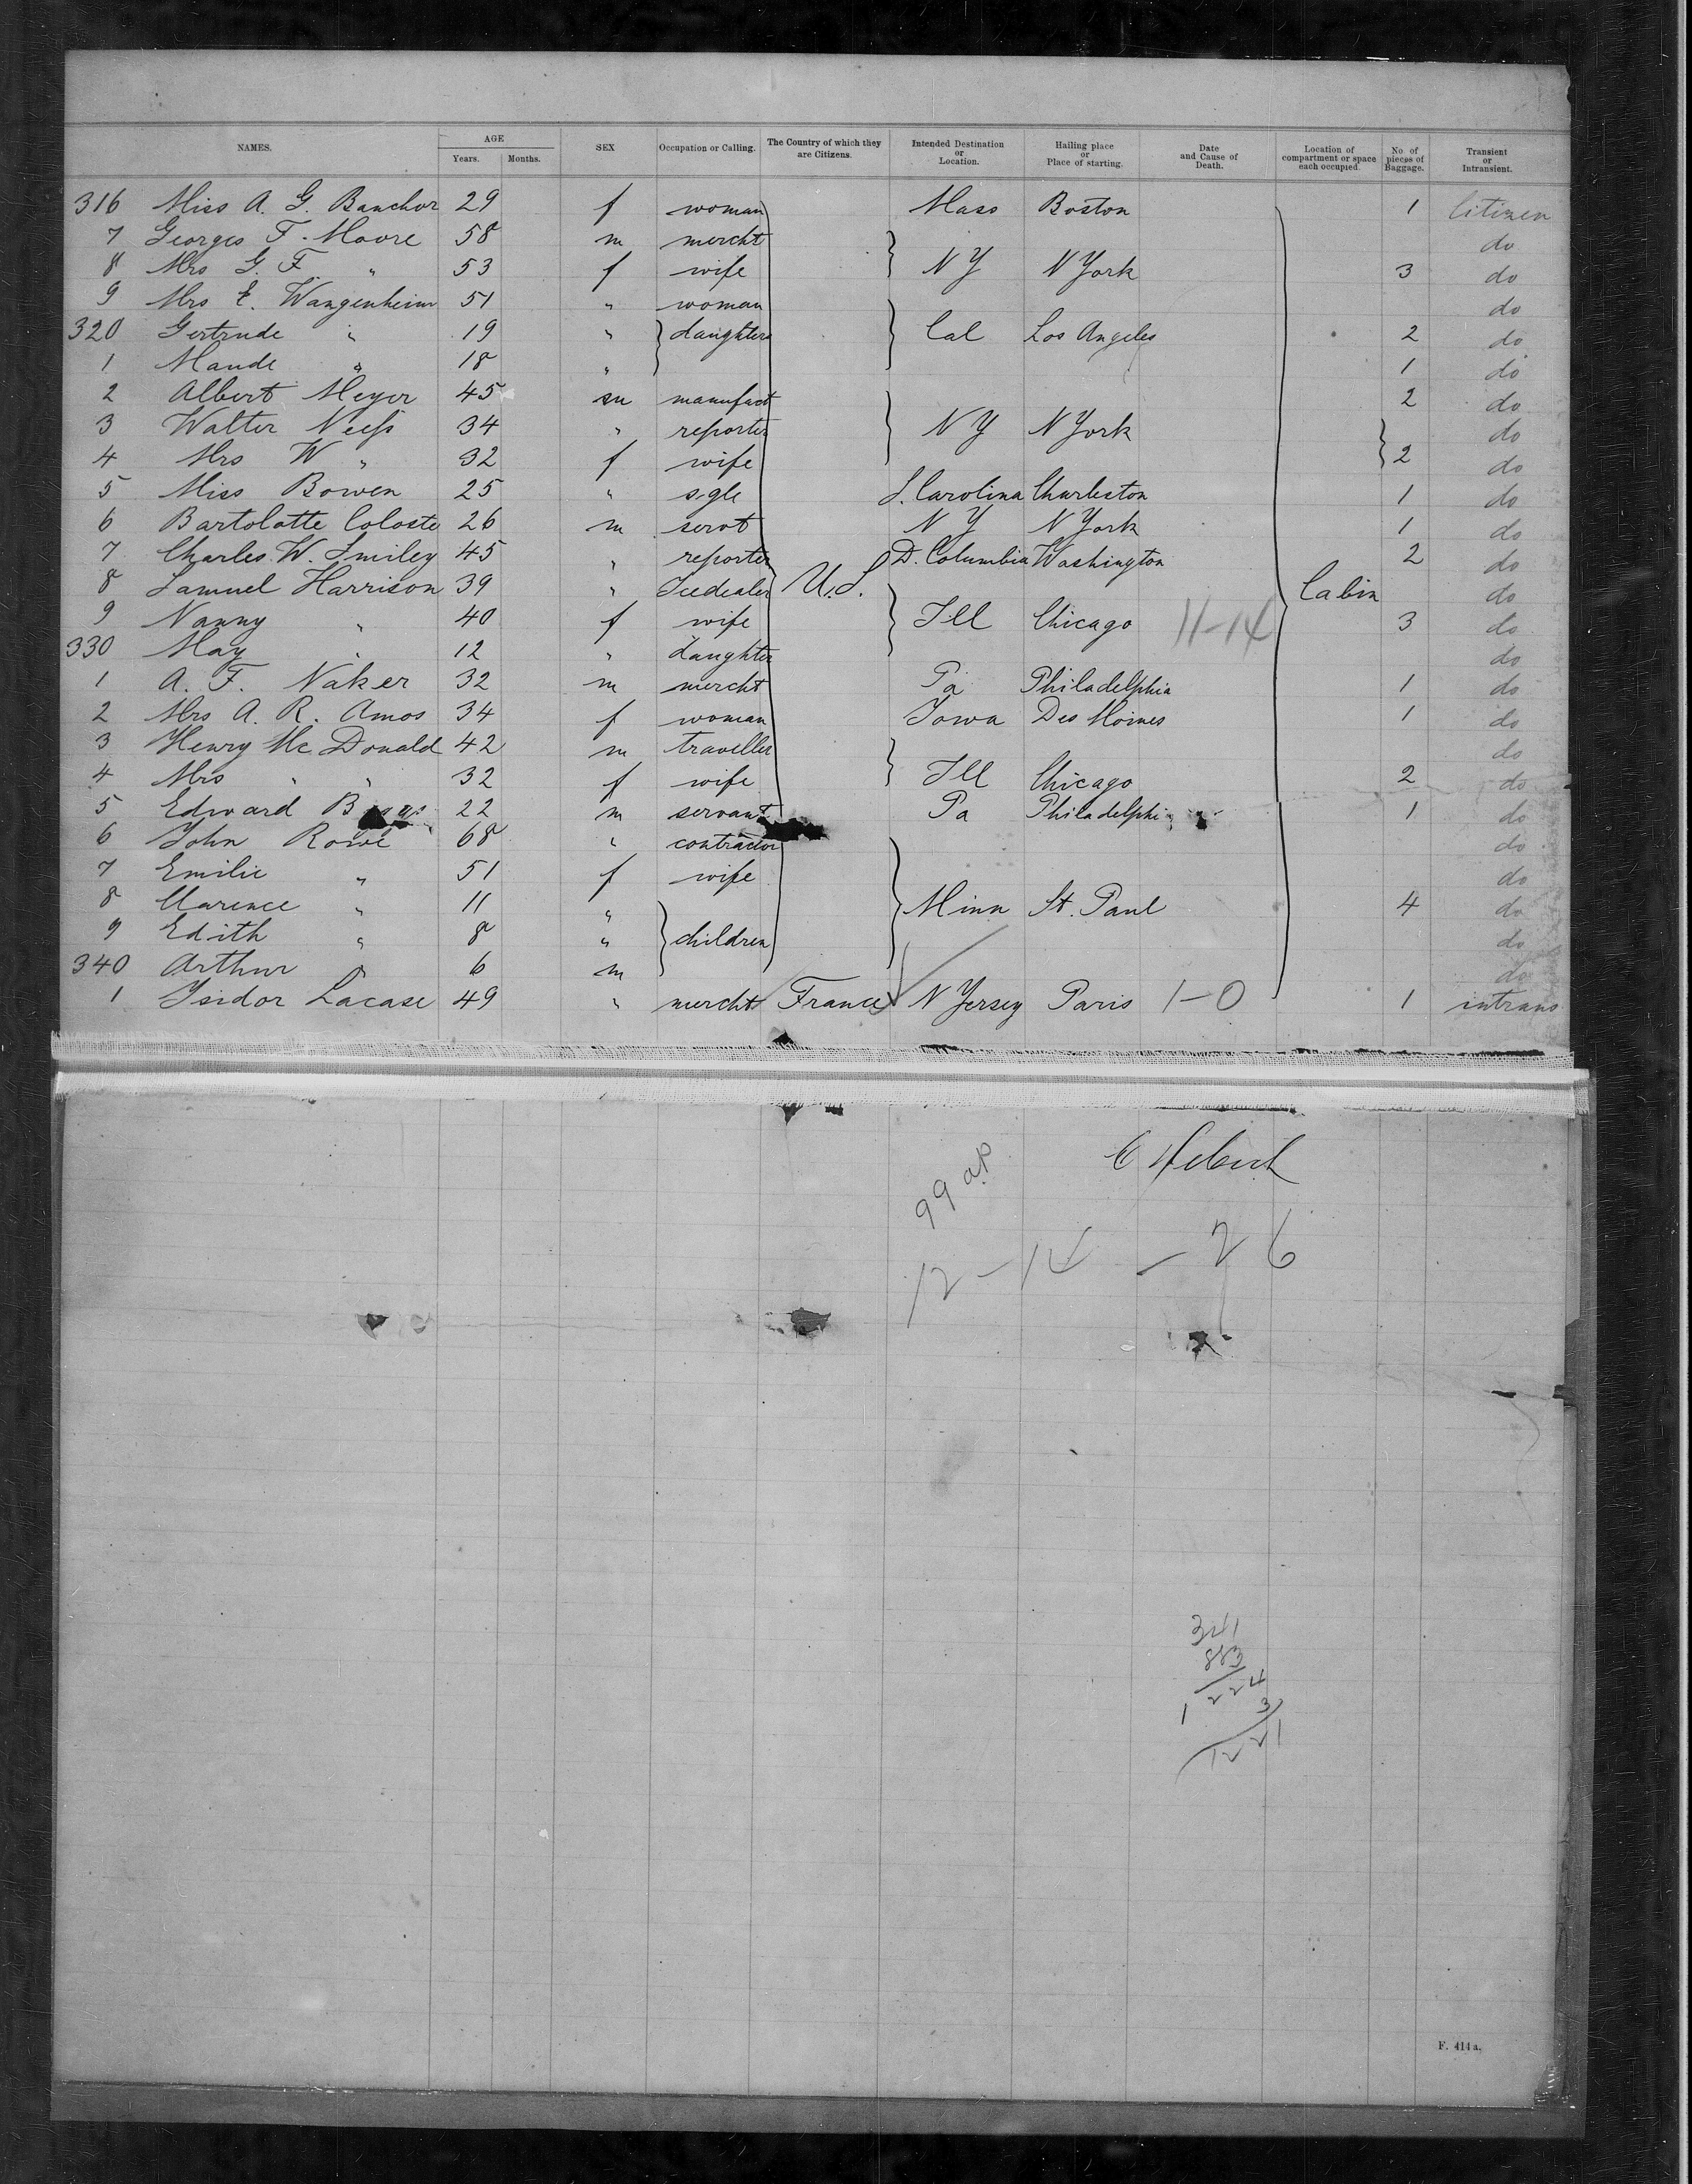 NAMES. AGE SEX Occupation or Calling. The Country of which they are Citizens. Intended Destination or Location. Hailing place or Place of starting. Date and Cause of Death. Location of compartment or space each occupied. No. of pieces of Baggage. Transient or Intransient.
Years. Months.
316 Miss A. G. Banchor 29 f woman Mass Boston 1 Citizen
7 Georges F. Moore 58 m mercht do
8 Mrs G. F. " 53 f wife N Y N York 3 do
9 Mrs E. Wangenheim 51 " woman do
320 Gertrude " 19 " daughters Cal Los Angeles 2 do
1 Maude " 18 " 1 do
2 Albert Meyer 45 m manufact 2 do
3 Walter Neess 34 " reporter N Y N York do
4 Mrs W " 32 f wife 2 do
5 Miss Bowen 25 " sgle S. Carolina Charleston 1 do
6 Bartolotte Coloste 26 m servt N Y N York 1 do
7 Charles W. Smiley 45 " reporter D. Columbia Washington 2 do
8 Samuel Harrison 39 " Icedealer U.S. Cabin do
9 Nanny " 40 f wife Ill Chicago 11-14 3 do
330 May " 12 " daughter do
1 A. F. Naker 32 m mercht Pa Philadelphia 1 do
2 Mrs A. R. Amos 34 f woman Iowa Des Moines 1 do
3 Henry Mc Donald 42 m traveller do
4 Mrs " " 32 f wife Ill Chicago 2 do
5 Edward 22 m servant Pa Philadelphi 1 do
6 John Rowe 68 " contractor do
7 Emilie " 51 f wife do
8 Clarence " 11 " Minn St. Paul 4 do
9 Edith " 8 " children do
340 Arthur " 6 m do
1 Isidor Lacase 49 " mercht France N Jersey Paris 1-0 1 intrans
99 ap
12-14 - 26
341
883
1 224
3
1221
F. 414 a.